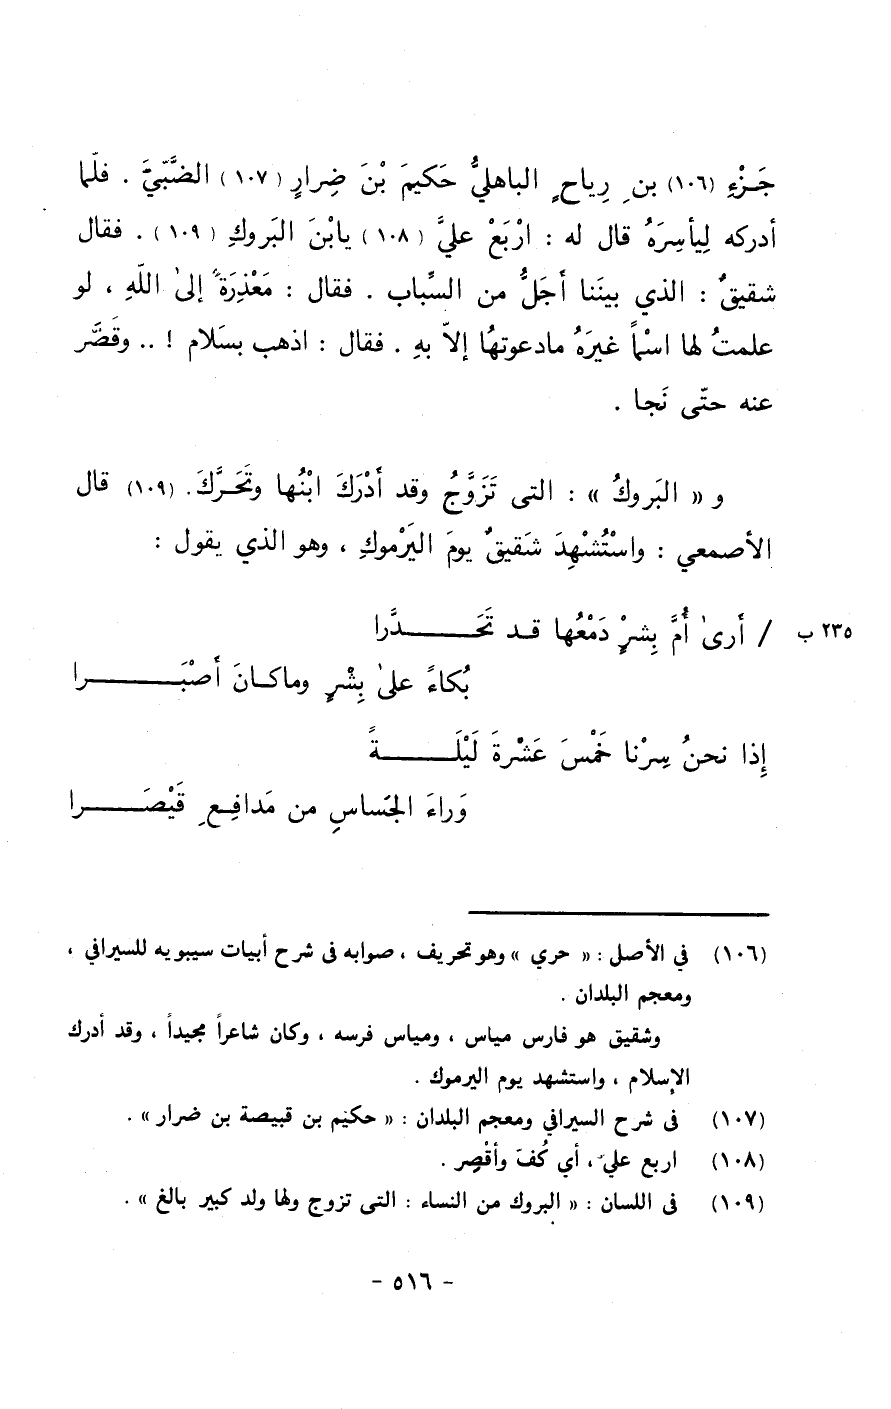 جَزْءِ (١٠٦) بنِ رِياحٍ الباهليُّ حَكيمَ بْنَ ضِرارٍ (١٠٧) الضَّبّيَّ . فلّما
أدركه لِيأسِرَهُ قال له : ارْبَعْ عليَّ (١٠٨) يابْنَ البَروكِ (١٠٩) . فقال
شقيقٌ : الذي بينَنا أَجَلُّ من السِّباب . فقال : مَعْذِرَةً إلىٰ اللّهِ ، لو
علمتُ لها اسْماً غيرَهُ مادعوتهُا إلاّ بهِ . فقال : اذهب بسَلام ! .. وقَصَّر
عنه حتّى نَجا .
و « البَروكُ » : التى تَزَوَّجُ وقد أدْرَكَ ابْنُها وتَحَرَّكَ. (١٠٩) قال
الأصمعي : واسْتُشْهِدَ شَقيقٌ يومَ اليَرْموكِ ، وهو الذي يقول :
٢٣٥ ب / أَرىٰ أُمَّ بِشرٍ دَمْعُها قد تَحَدَّرا
بُكاءً علىٰ بِشْرٍ وماكانَ أَصْبَرا
إِذا نحنُ سِرْنا خَمْسَ عَشْرةَ لَيْلَةً
وَراءَ الحَساسِ من مَدافِعِ قَيْصَرا
(١٠٦) في الأصل : « حري » وهو تحريف ، صوابه فى شرح أبيات سيبويه للسيرافي ،
ومعجم البلدان .
وشقيق هو فارس مياس ، ومياس فرسه ، وكان شاعراً مجيداً ، وقد أدرك
الإسلام ، واستشهد يوم اليرموك .
(١٠٧) فى شرح السيرافي ومعجم البلدان : « حكيم بن قبيصة بن ضرار » .
(١٠٨) اربع عليَ ، أي كُفَ وأقْصِر .
(١٠٩) فى اللسان : « البروك من النساء : التى تزوج ولها ولد كبير بالغ » .
- ٥١٦ -